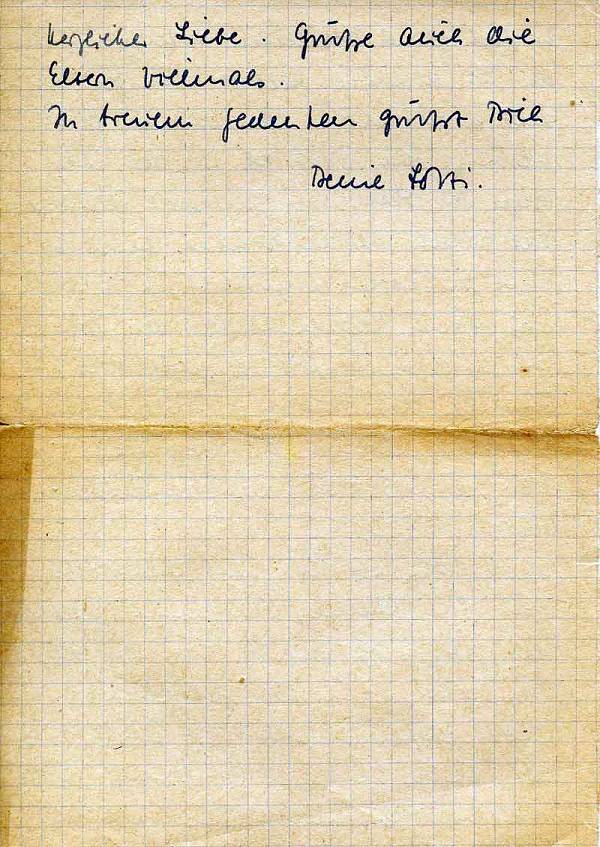 herzlicher Liebe. Grüße auch die
Eltern vielmals.
In treuem Gedenken grüßt Dich
Deine Lotti.